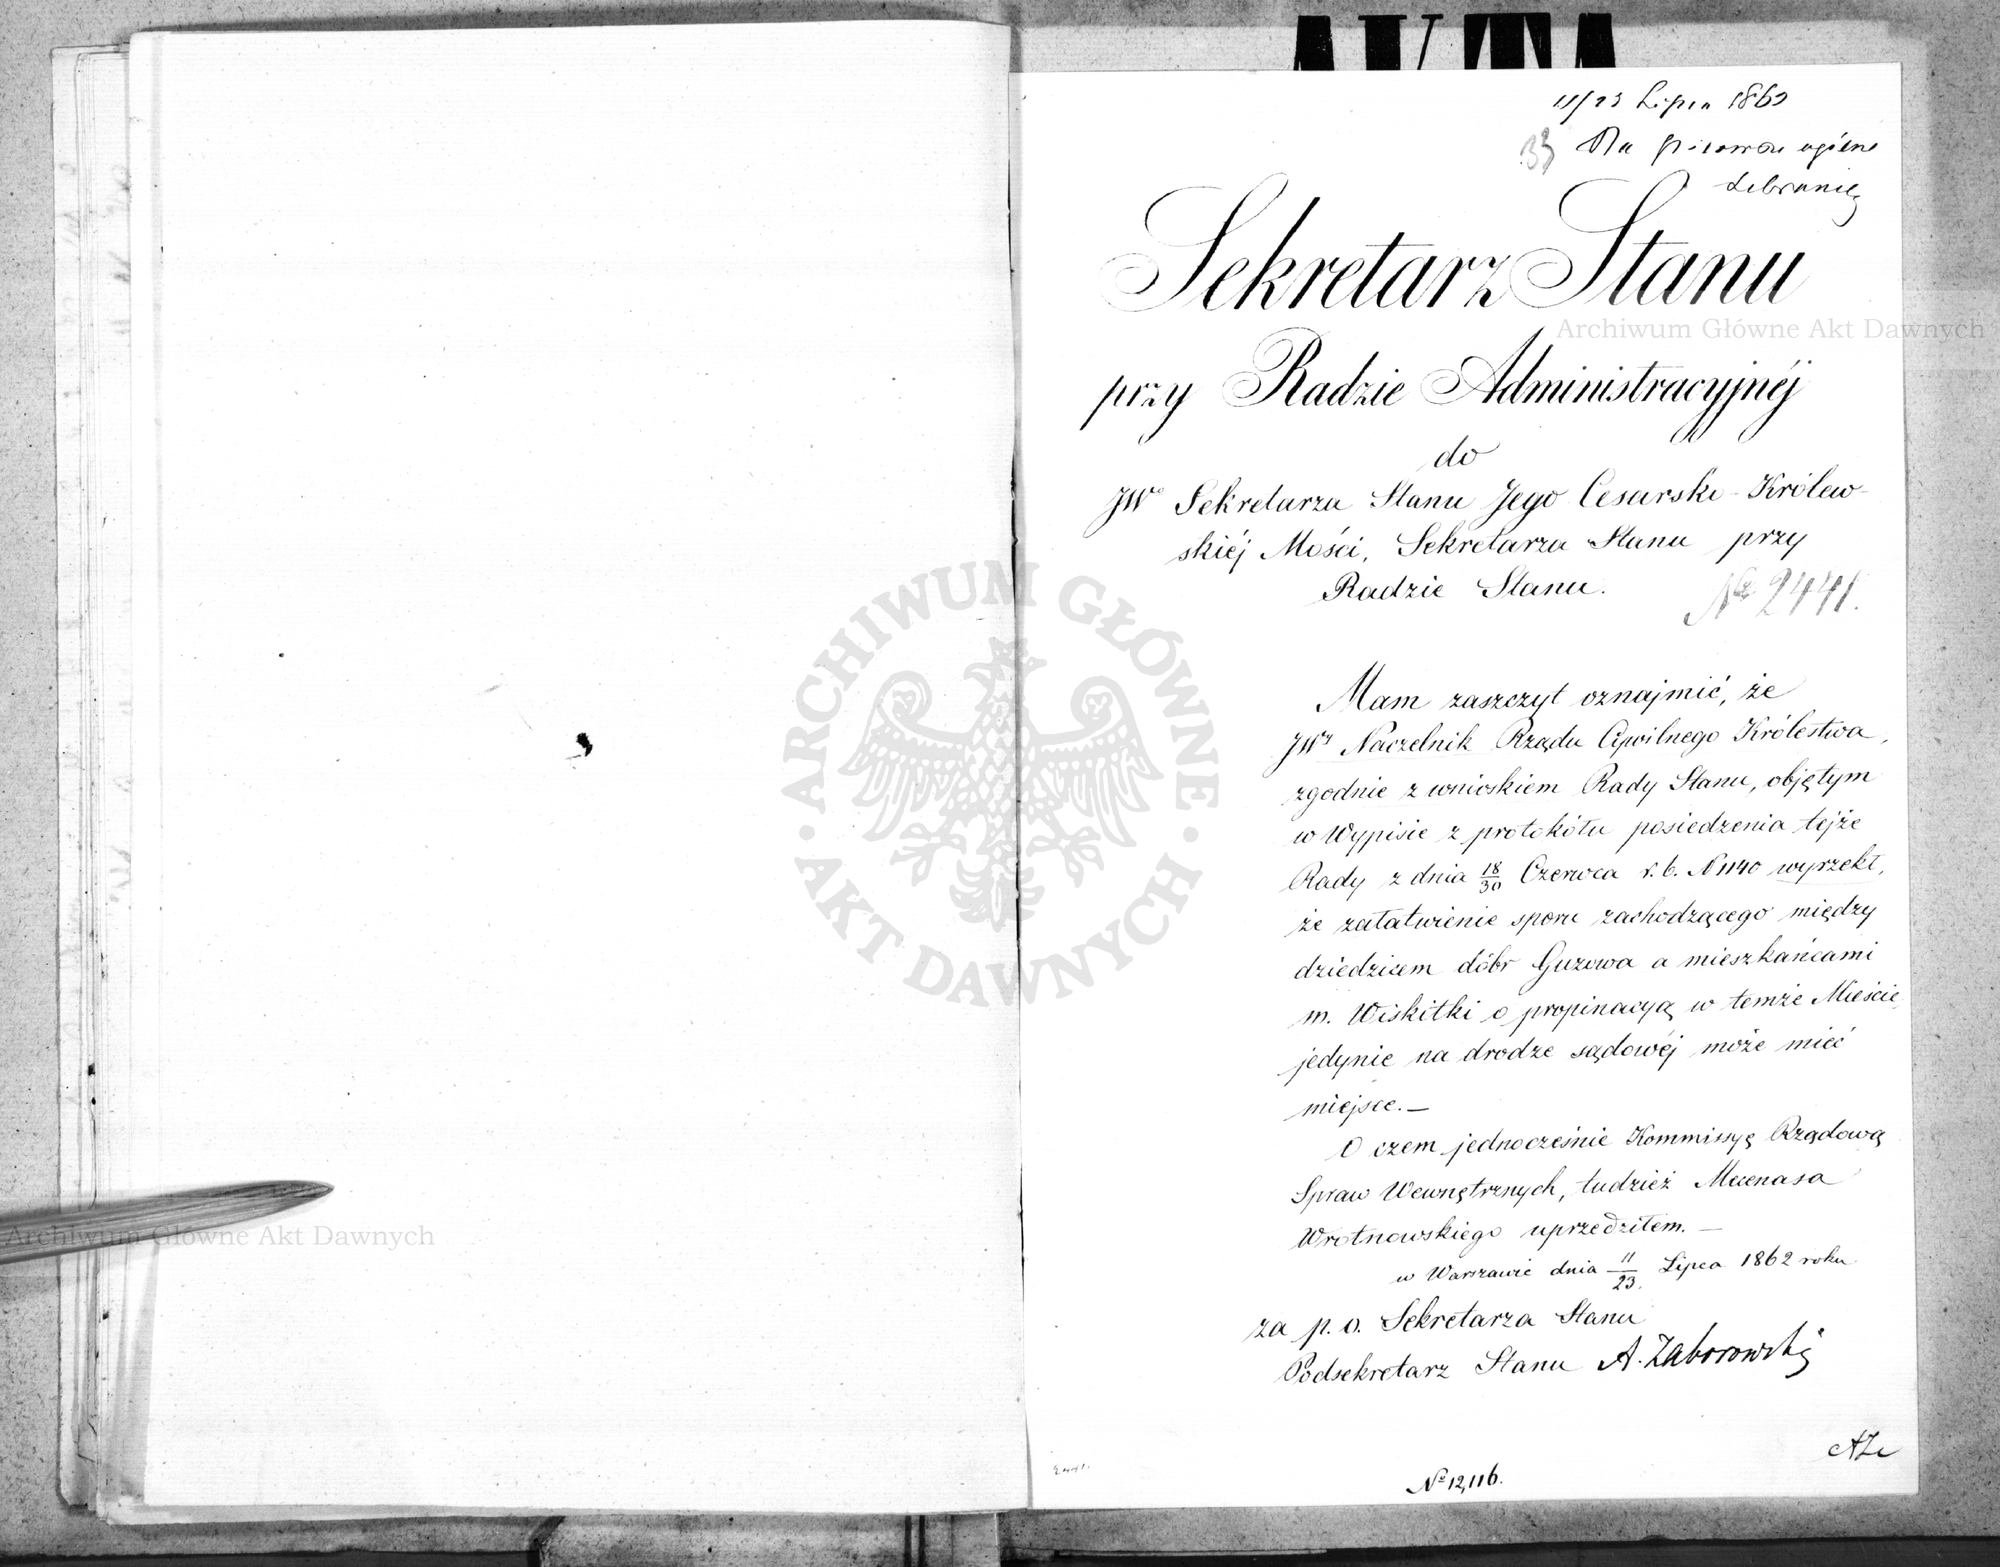 11/23 Lipca 1862
33 Na pierwsze ogólne
Zebranie
Sekretarz Stanu
przy Radzie Administracyjnéj
do
JWo Sekretarza Stanu Jego Cesarsko-Królew-
skiéj Mości, Sekretarza Stanu przy
Radzie Stanu.
No 2441.
Mam zaszczyt oznajmić, że
JWy Naczelnik Rządu Cywilnego Królestwa,
zgodnie z wnioskiem Rady Stanu, objętym
w Wypisie z protokółu posiedzenia tejże
Rady z dnia 18/30 Czerwca r. b. N 1140 wyrzekł,
że załatwienie sporu zachodzącego między
dziedzicem dóbr Guzowa a mieszkańcami
m. Wiskitki o propinacyą w temże Mieście,
jedynie na drodze sądowéj może mieć
miejsce.—
O czem jednocześnie Kommissyę Rządową
Spraw Wewnętrznych, tudzież Mecenasa
Wrotnowskiego uprzedziłem.—
w Warszawie dnia 11/23 Lipca 1862 roku
za p. o. Sekretarza Stanu
Podsekretarz Stanu A. Zaborowski
No 12,116.
ARCHIWUM GŁÓWNE AKT DAWNYCH
Archiwum Główne Akt Dawnych
Archiwum Główne Akt Dawnych